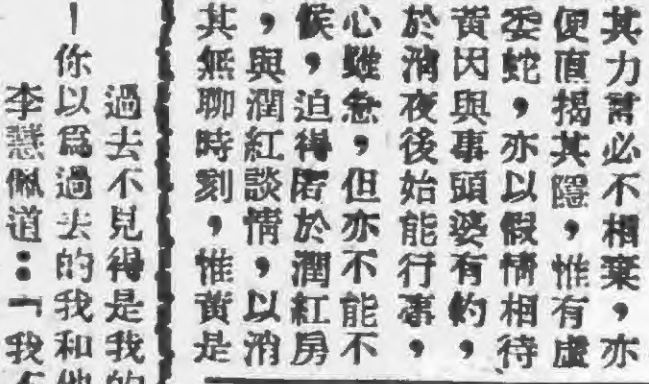 其力言必不相棄，亦
便直揭其隱，惟有虛
委蛇，亦以假情相待
黃因與事頭婆有約，
於消夜後始能行事，
心雖急，但亦不能不
候，迫得暫於潤紅房
，與潤紅談情，以消
其無聊時刻，惟黃是
過去不見得是我的
｜你以為過去的我和他
李慧佩道：「我不